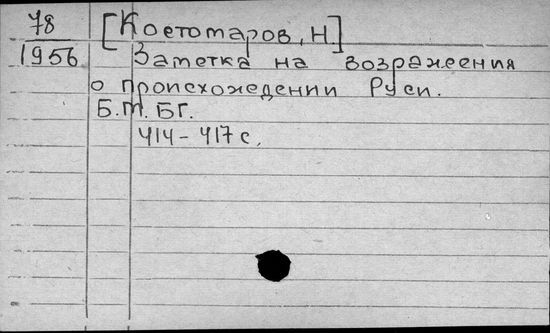 78
1956
[Костомаров, Н.]
Заметка на возражения
о происхождении Руси.
Б.М. БГ.
414 - 417 с.